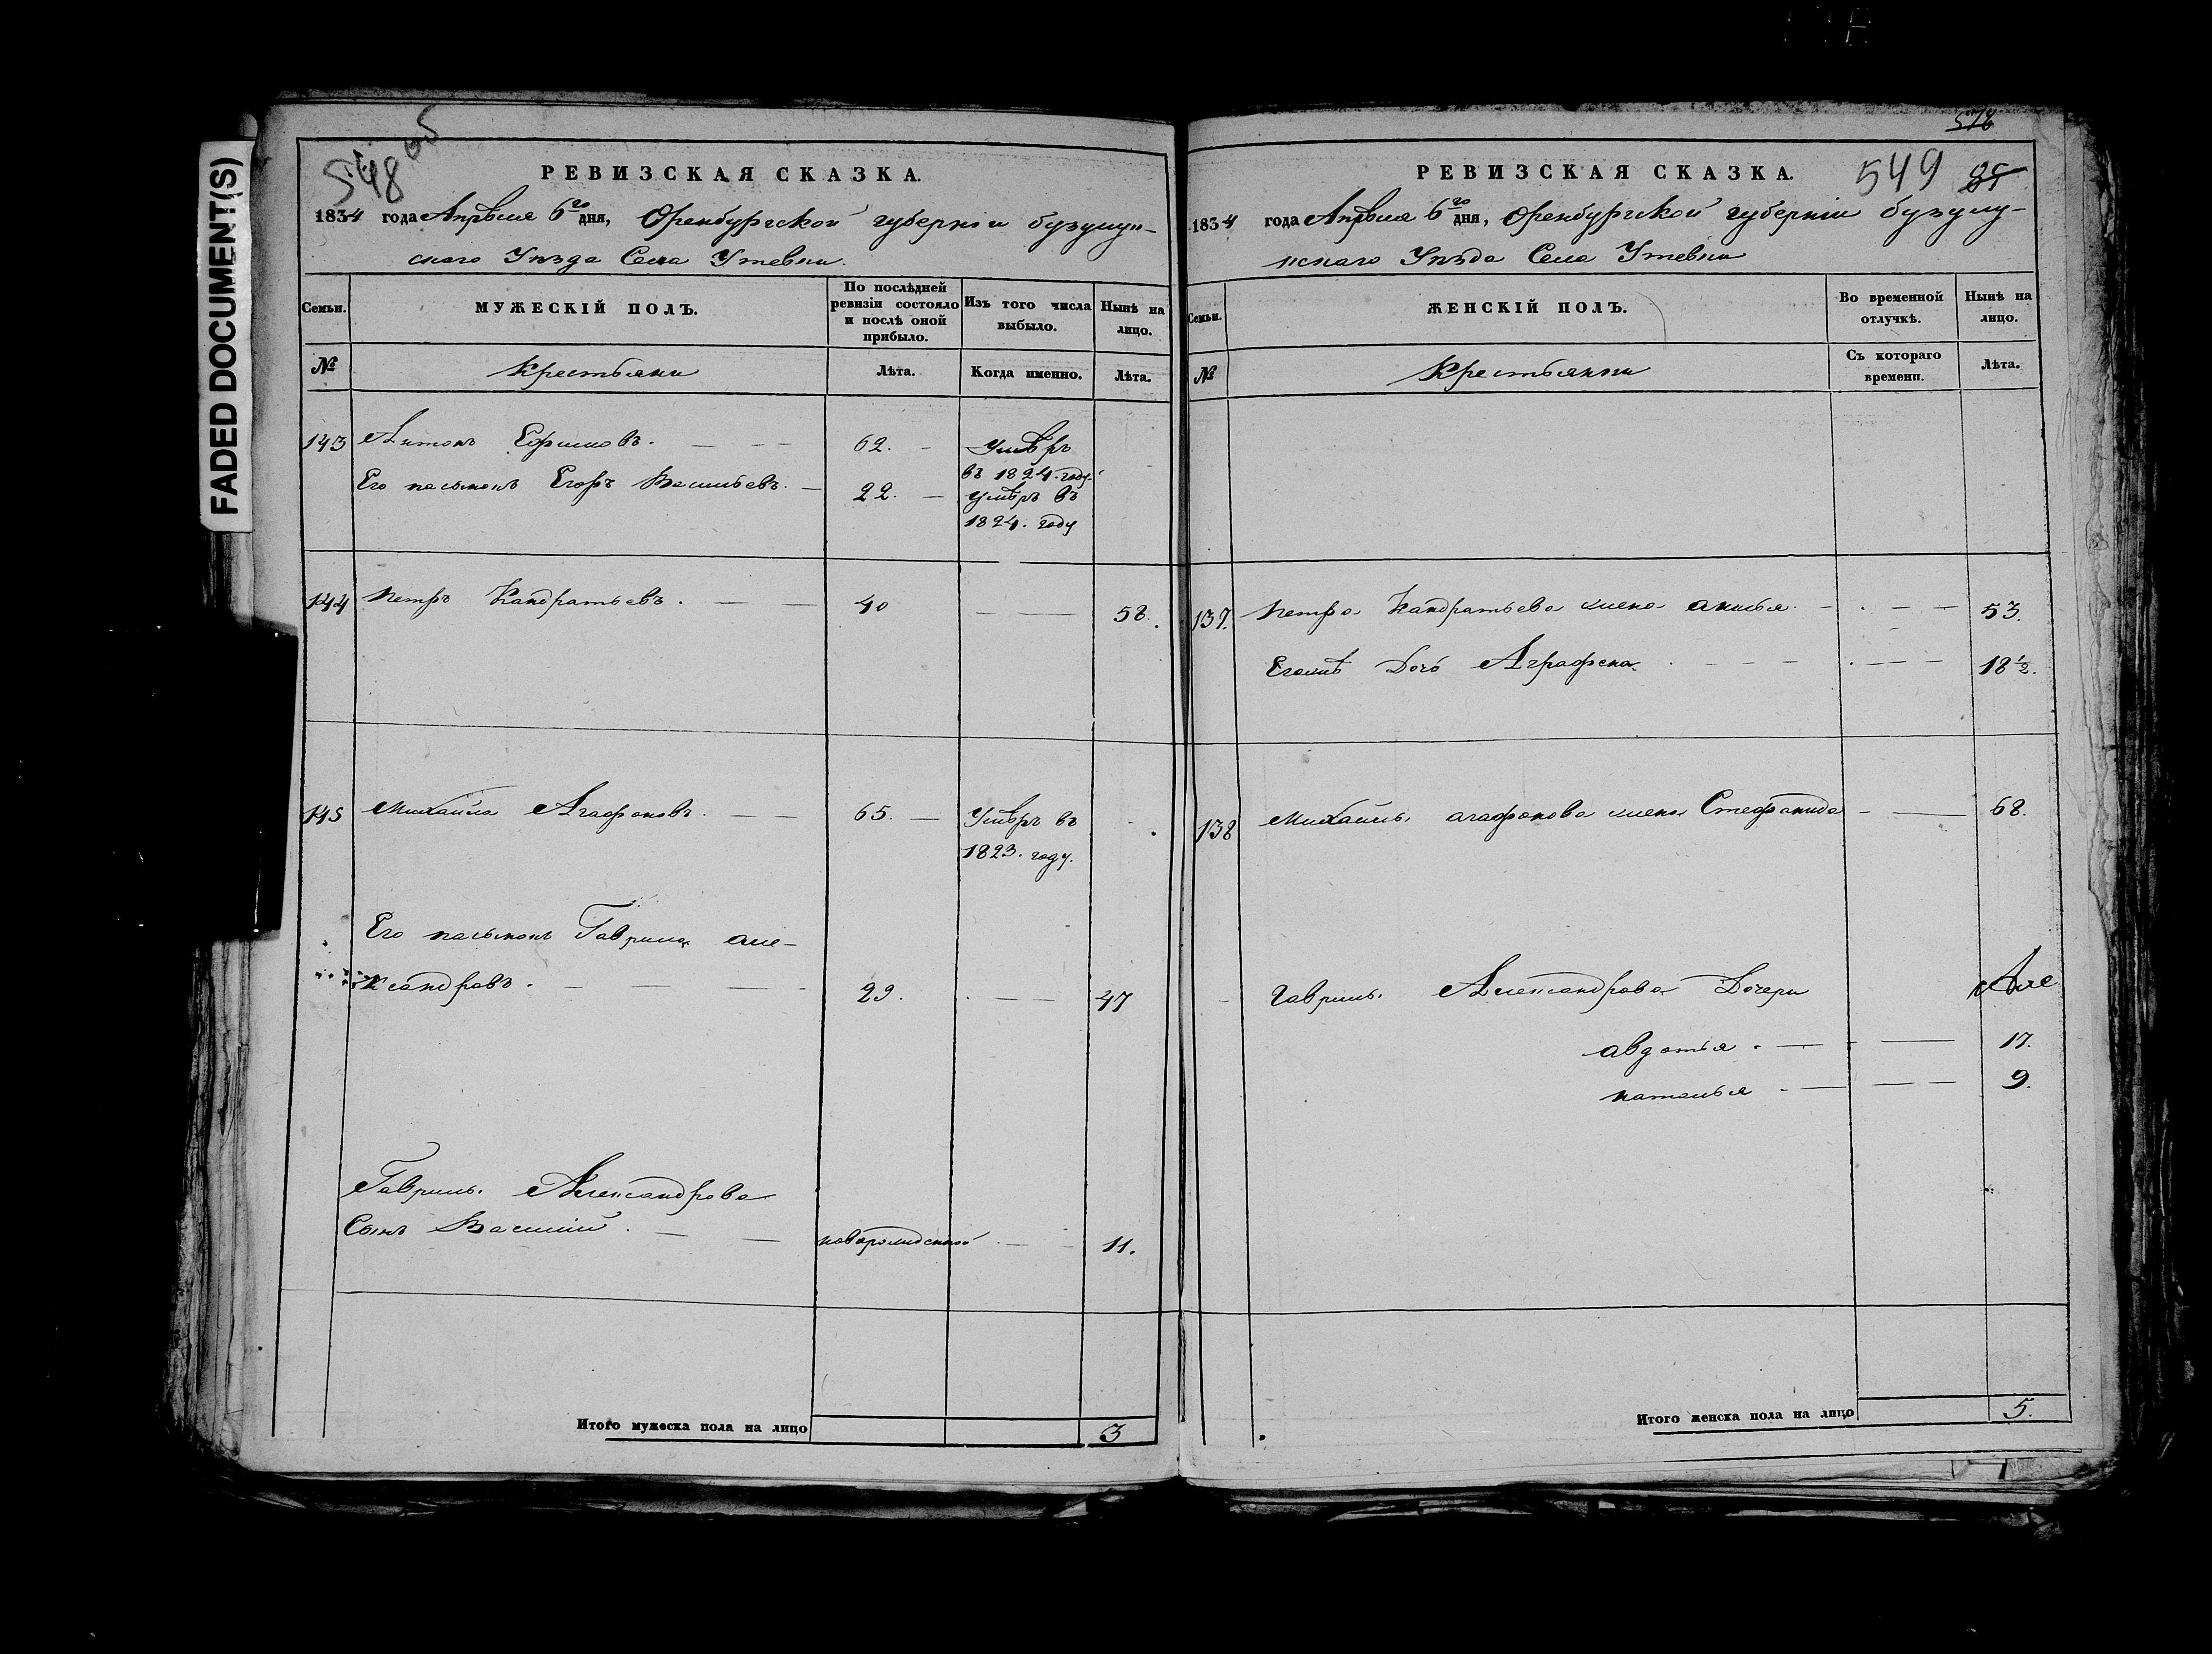 FADED DOCUMENT(S)
548
РЕВИЗСКАЯ СКАЗКА.
1834 года Апрѣля 6го дня, Оренбургской губерніи бузулун-
скаго Уѣзда Села Утевки.
Семьи.
МУЖЕСКІЙ ПОЛЪ.
По послѣдней ревизіи состояло и послѣ оной прибыло.
Изъ того числа выбыло.
Нынѣ на лицо.
№
Крестьяни
Лѣта.
Когда именно.
Лѣта.
143 Антонъ Ефимовъ. 62. Умѣръ
въ 1824. году
Его пасынокъ Егоръ Васильевъ. 22. умѣръ въ
1824. году
144 Петръ Кандратьевъ. 40 58.
145 Михаила Агафоновъ. 65. Умѣръ въ
1823. году.
Его пасынокъ Гаврила але-
ксандровъ. 29. 47
Гаврилы Александрова
Сынъ Василий. новорожденной 11.
Итого мужеска пола на лицо 3
576
РЕВИЗСКАЯ СКАЗКА.
549
1834 года Апрѣля 6го дня, Оренбургской губерніи бузулу-
нскаго Уѣзда Села Утевки
Семьи.
ЖЕНСКІЙ ПОЛЪ.
Во временной отлучкѣ.
Нынѣ на лицо.
№
Крестьянки
Съ котораго времени.
Лѣта.
137. Петра Кандратьева жена акилья. 53.
Егожъ Дочь Аграфена 18 1/2.
138 Михайлы агафонова жена Стефанида 68.
Гаврилы Александрова Дочери
авдотья. 17.
наталья 9.
Итого женска пола на лицо 5.